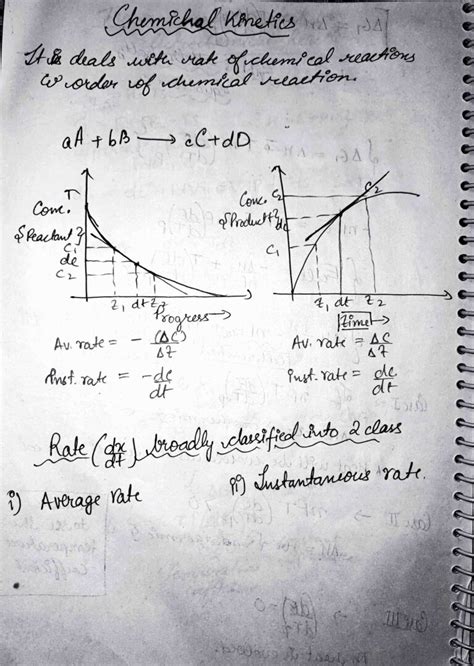 Chemichal Kinetics
It is deals with rate of chemical reactions
& order of chemical reaction.
aA + bB → cC + dD
Conc. ↑
{Reactant}
C1
dc
C2
t1 dt t2
Progress →
Conc.
{Product}
C2
dc
C1
C2
t1 dt t2
time →
Av. rate = - (ΔC)/Δt
Av. rate = ΔC/Δt
Inst. rate = -dc/dt
Inst. rate = dc/dt
Rate (dx/dt) broadly classified into 2 class
i) Average rate
ii) Instantaneous rate.